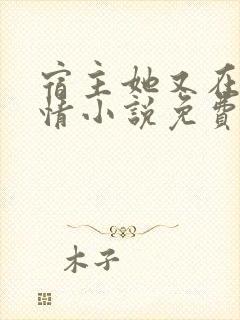 宿主她又在
情小说免费
木子